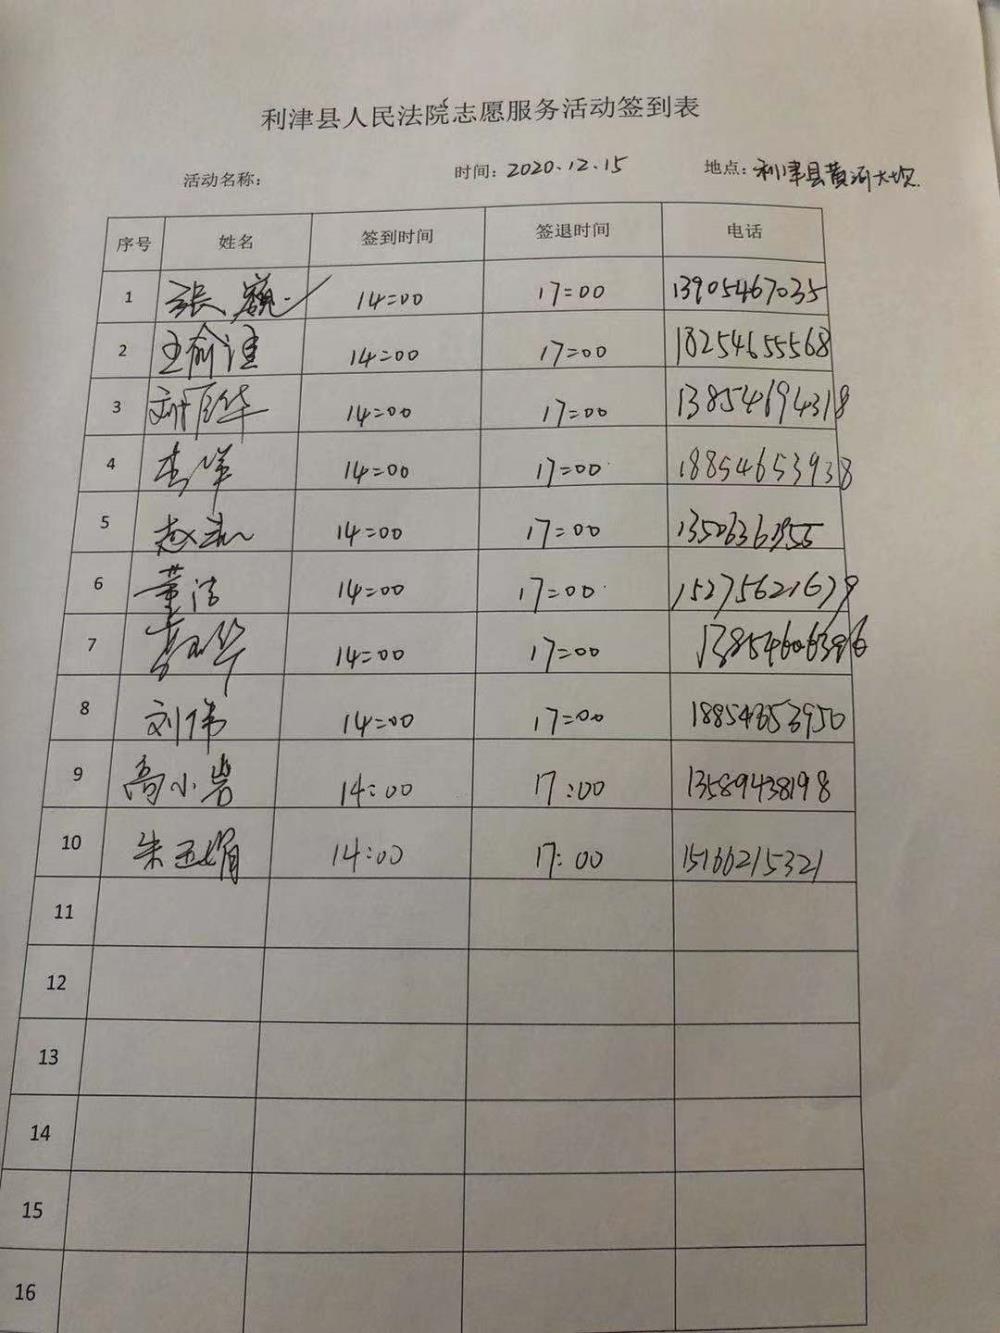 利津县人民法院志愿服务活动签到表
活动名称： 时间：2020.12.15 地点：利津县黄河大坝
序号 姓名 签到时间 签退时间 电话
1 张巍 14:00 17:00 13905467035
2 王俞谨 14:00 17:00 18254655568
3 14:00 17:00 13854694318
4 李洋 14:00 17:00 18854653938
5 赵 14:00 17:00
6 董洁 14:00 17:00 15275621679
7 14:00 17:00 13854606396
8 刘伟 14:00 17:00 18854653950
9 高小岩 14:00 17:00 13589438198
10 朱玉娟 14:00 17:00 15166215321
11
12
13
14
15
16